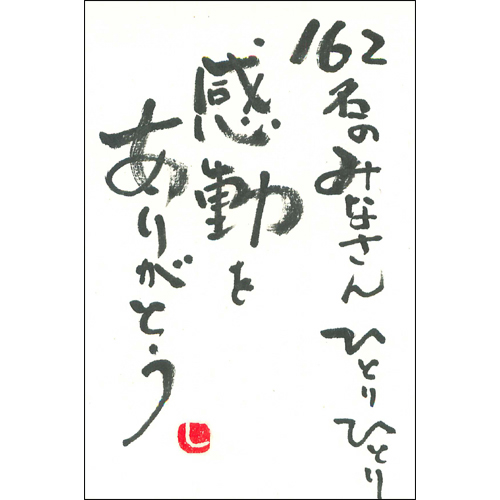 162名のみなさん ひとりひとり
感動を
ありがとう
し